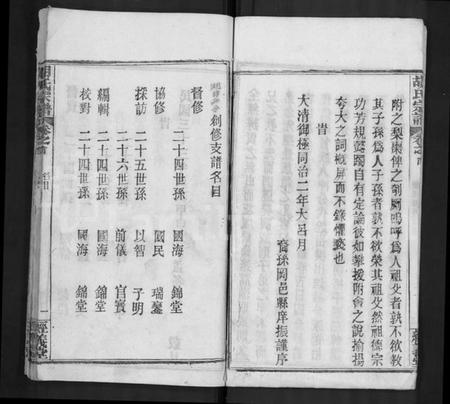 附之梨棗俾之剞劂嗚呼為人祖父者孰不欲教
其子孫為人子孫者孰不欲榮其祖父然祖德宗
功芳規懿躅自有定論彼如攀援附會之說揄揚
夸大之詞概屏而不錄懼褻也
旹
大清御極同治二年大呂月
裔孫岡邑縣庠振謹序
胡氏宗譜
卷之首
創修支譜名目
督修 二十四世孫 國海 錦堂
協修 國民 瑞鑾
採訪 二十五世孫 以智 子明
二十六世孫 前儀 官賓
編輯 二十四世孫 國海 錦堂
校對 二十四世孫 國海 錦堂
胡氏宗譜
卷之首
名目
一
經義堂